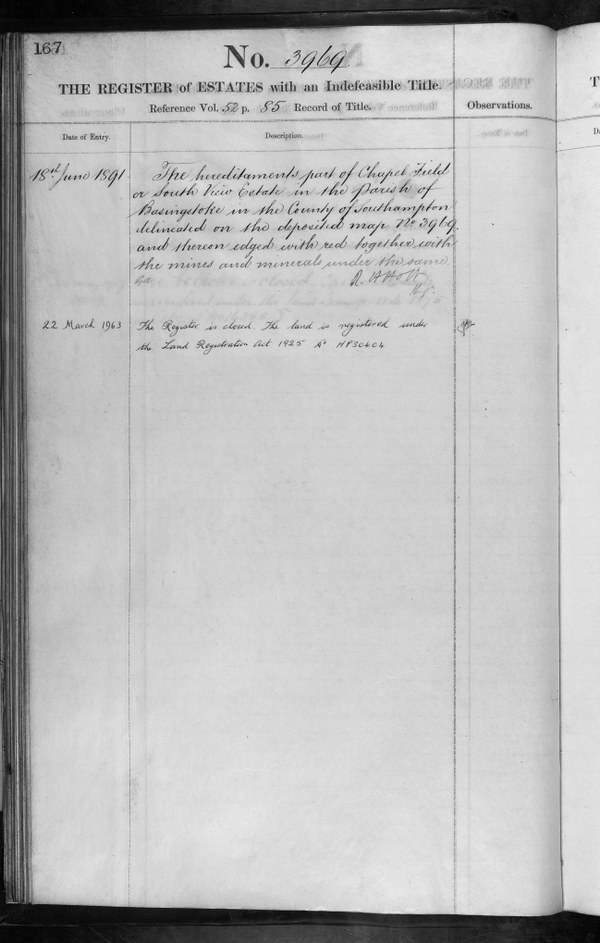 167
No. 3969
THE REGISTER of ESTATES with an Indefeasible Title.
Reference Vol. 52 p. 85 Record of Title.
Observations.
Date of Entry.
Description.
18th June 1891
The hereditaments part of Chapel Field
or South View Estate in the Parish of
Basingstoke in the County of Southampton
delineated on the deposited map No 3969
and thereon edged with red together with
the mines and minerals under the same
22 March 1963
The Register is closed. The land is registered under
the Land Registration Act 1925 No HP30404